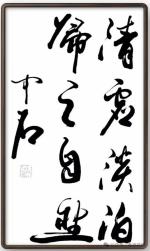 清虚淡泊
归之自然
中石